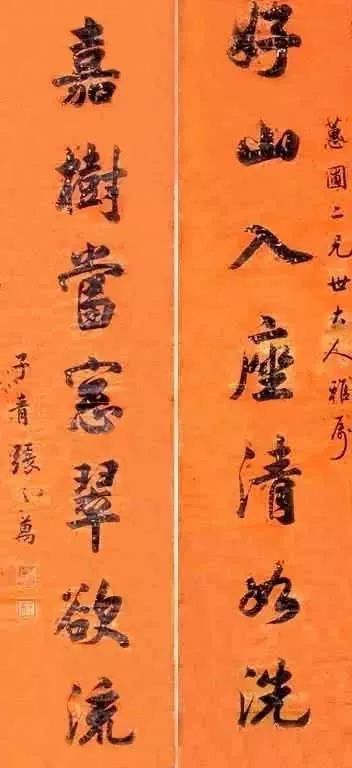 蕙圃二兄世大人雅屬
好山入座清如洗
嘉樹當窓翠欲流
子青張之萬